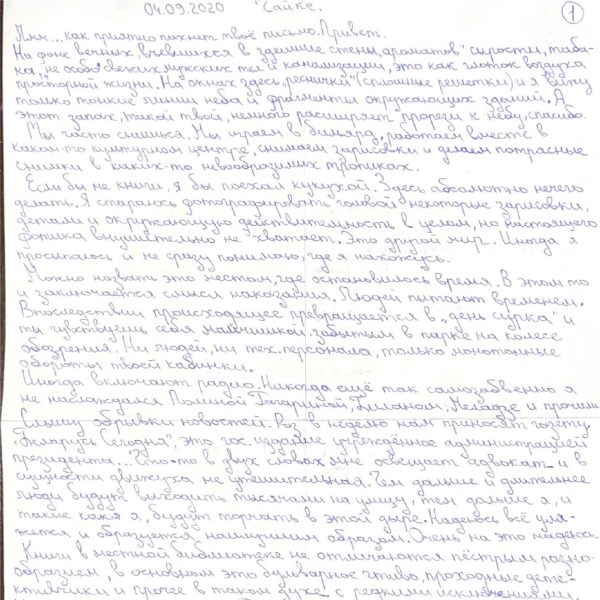 04.09.2020 "Сайке. 1
Ммм... как приятно пахнет твоё письмо. Привет.
На фоне вечных, въевшихся в здешние стены „ароматов" сырости, таба-
ка, не особо свежих мужских тел и канализации, это как глоток воздуха
просторной жизни. На окнах здесь „реснички" (сплошные решетки) и я вижу
только тонкие линии неба и фрагменты окружающих зданий. А
этот запах, такой твой, немного расширяет прорези к небу, спасибо.
Ты часто снишься. Мы играем в бильярд, работаем вместе в
каком-то культурном центре, снимаем зарисовки и делаем потрясные
снимки в каких-то невообразимых тропиках.
Если бы не книги, я бы поехал кукухой. Здесь абсолютно нечего
делать. Я стараюсь фотографировать головой некоторые зарисовки,
детали и окружающую действительность в целом, но настоящего
фотика внушительно не хватает. Это другой мир. Иногда я
просыпаюсь и не сразу понимаю, где я нахожусь.
Можно назвать это местом, где остановилось время. В этом то
и заключается смысл наказания. Людей пытают временем.
Впоследствии происходящее превращается в „день сурка" и
ты чувствуешь себя мальчишкой забытым в парке на колесе
обозрения. Ни людей, ни тех. персонала, только монотонные
обороты твоей кабинки.
Иногда включают радио. Никогда ещё так самозабвенно я
не наслаждался Полиной Гагариной, Биланом, Меладзе и прочими
Слышу обрывки новостей. Раз в неделю нам приносят газету
"Беларусь Сегодня", это гос. издание учреждённое администрацией
президента... Что-то в двух словах мне освещает адвокат и в
сущности движуха не утешительная. Чем дальше и длительнее
люди будут выходить тысячами на улицу, тем дольше я, и
такие как я, будут торчать в этой дыре. Надеюсь всё ула-
жется и образуется наилучшим образом. Очень на это надеюсь.
Книги в местной библиотеке не отличаются пёстрым разно-
образием, в основном это бульварное чтиво, проходные дете-
ктивчики и прочее в таком духе с редкими исключениями.